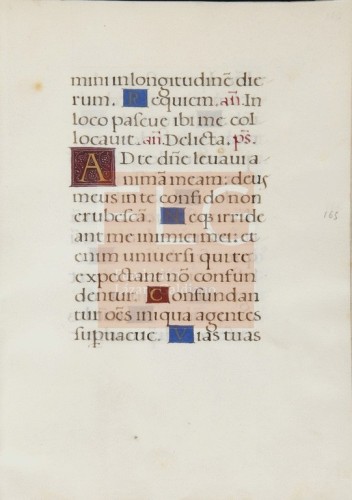 mini in longitudinē die
rum. Requiem. añ. In
loco pascue ibi me col
locavit. añ. Delicta. ps.
AD te dn̄e levavi a
nimā meam: deus
meus in te confido non
erubescā. Neqʒ irride
ant me inimici mei: et
enim universi qui te
expectant nō confun
dentur. Confundan
tur oēs iniqua agentes
supvacue. Vias tuas
165